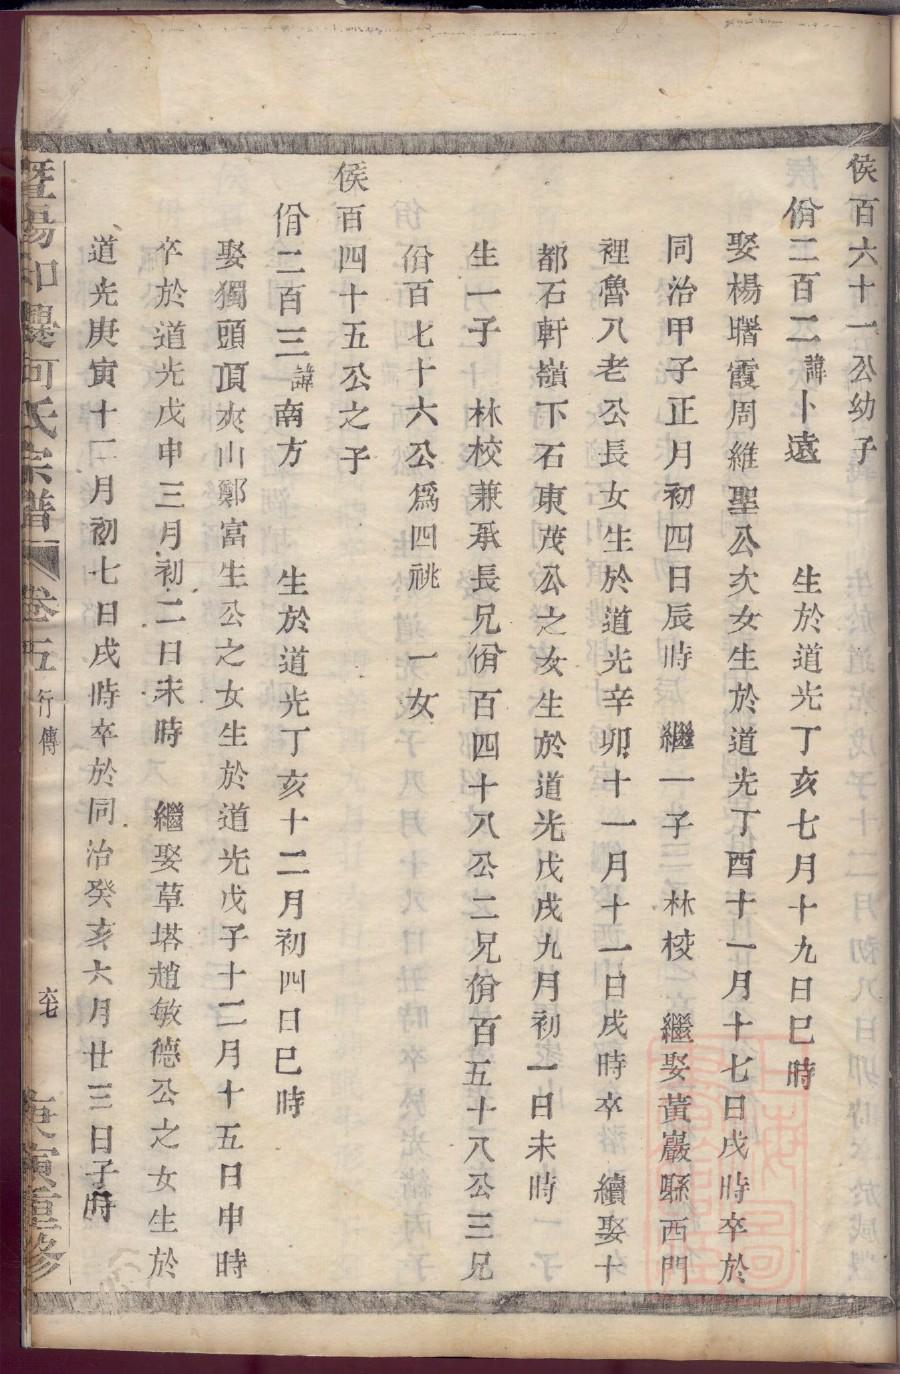 侯百六十一公幼子
佾二百二諱卜遠 生於道光丁亥七月十九日巳時
娶楊曙霞周維聖公次女生於道光丁酉十一月十七日戌時卒於
同治甲子正月初四日辰時 繼一子 林校 繼娶黃巖縣西門
裡魯八老公長女生於道光辛卯十一月十一日戌時卒 續娶十
都石軒嶺下石東茂公之女生於道光戊戌九月初一日未時
生一子 林校兼承長兄佾百四十八公二兄佾百五十八公三兄
佾百七十六公爲四祧 一女
侯百四十五公之子
佾二百三諱南方 生於道光丁亥十二月初四日巳時
娶獨頭頂夾山鄭富生公之女生於道光戊子十二月十五日申時
卒於道光戊申三月初二日未時 繼娶草塔趙敏德公之女生於
道光庚寅十二月初七日戌時卒於同治癸亥六月廿三日子時
暨陽 何氏宗譜 卷五 行傳 庚寅重修